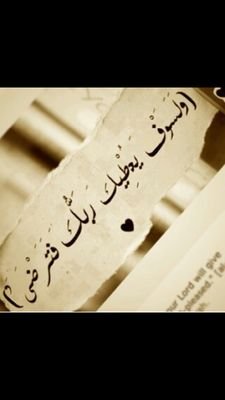 (وَلَسَوْفَ يُعْطِيْكَ رَبُّكَ فَتَرْضَىٰ)
our Lord will give
pleased." [al